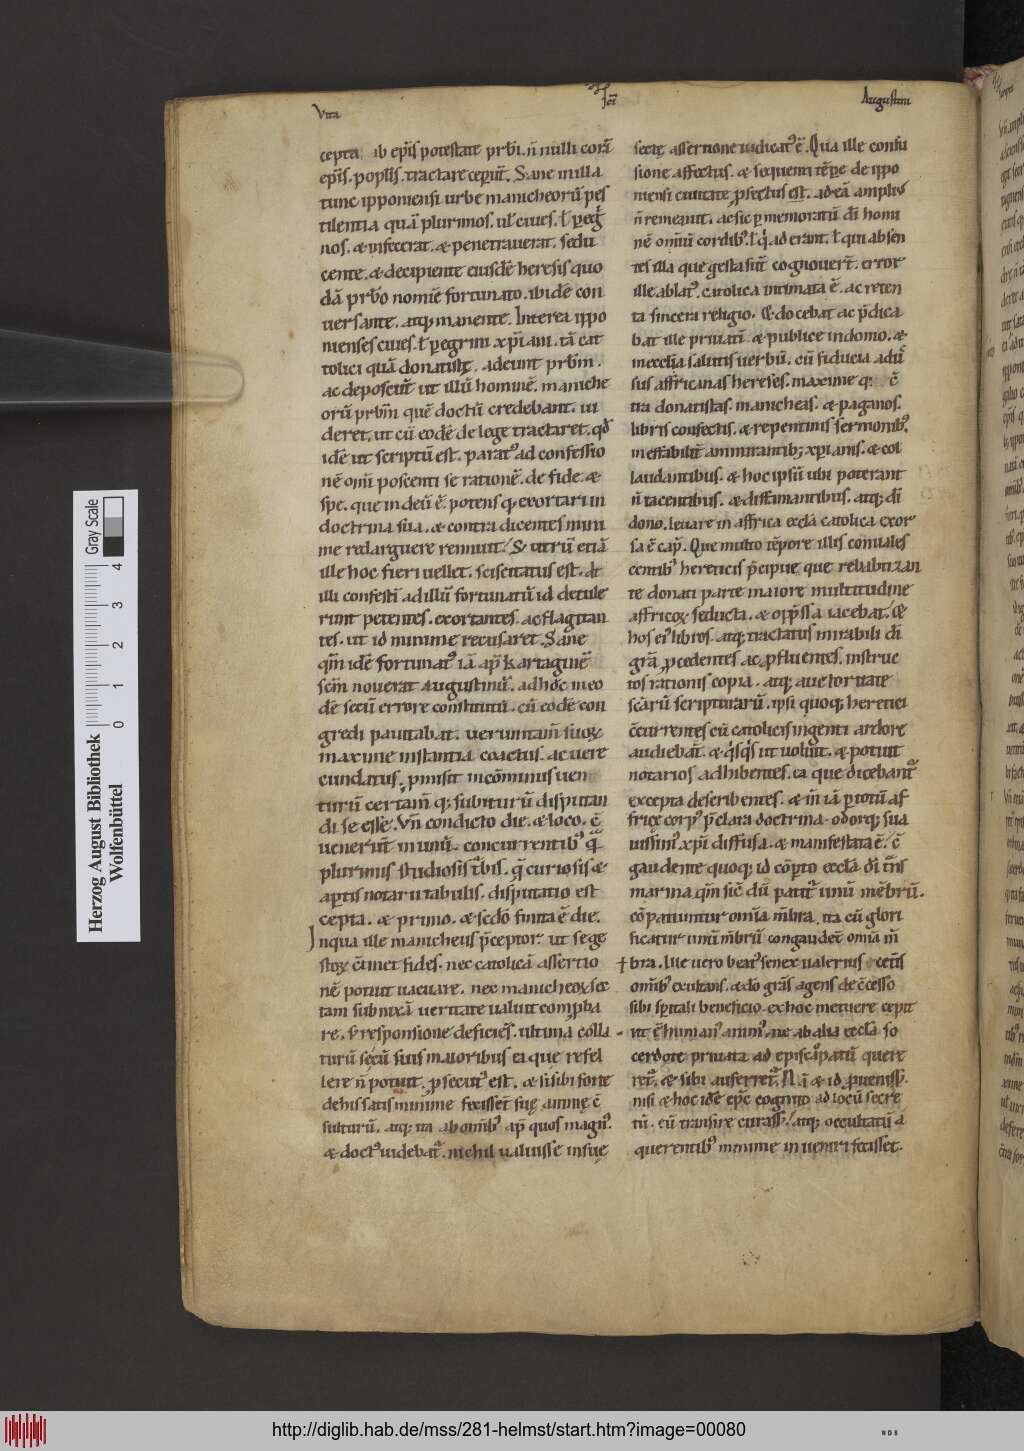 Vita
sci
Augustini
cepta ab epis potestate prbri. ñ nulli corã
epis. poplis. tractare ceperũt. Sane in illa
tunc ipponiensi urbe manicheorũ pes
tilentia quã plurimos. uł ciues. ł peg̃
nos. & infecerat. & penetrauerat. sedu
cente. & decipiente eiusdẽ heresis quo
dã prbro nomiẽ fortunato. ibidẽ con
uersante. atq; manente. Interea ippo
nienses ciues. ł peregrini xp̃iani. tã cat
tolici quã donatistę. adeunt prbrm.
ac deposcũt ut illũ hominẽ. maniche
orũ prbrm quẽ doctũ credebant. ui
deret. ut cũ eodẽ de lege tractaret. qđ
idẽ ut scriptũ est. parat᷒ ad confessio
nẽ om̃i poscenti se rationẽ. de fide. &
spe. que in deũ ẽ. potens q; exortari in
doctrina sua. & contra dicentes mini
me redarguere rennuit. S; utrũ etiã
ille hoc fieri uellet. sciscitatus est. at
illi confestĩ ad illũ fortunatũ id detule
runt petentes. exortantes. ac flagitan
tes. ut id minime recusaret. Sane
qm̃ idẽ fortunat᷒ iã ap̃ kartaginẽ
scm̃ nouerat augustinũ. adhoc in eo
dẽ secũ errore constitutũ. cũ eodẽ con
gredi pauitabat. uerumtam̃ suoꝝ
maxime instantia coactus. ac uere
cundatus. p̱misit in cõminus uen
turũ certam̃ q; subiturũ disputan
di se esse. Vñ condicto die. & loco. c̃
uenerũt in unũ. concurrentib᷒ q̃
plurimis studiosis t̃bis. q̃ curiosis &
aptis notarii tabulis. disputatio est
cepta. & primo. & sc̃do finita ẽ die.
In qua ille manicheus p̃ceptor. ut gesta
stoꝝ c̃tinet fides. nec catolicã assertio
nẽ potuit uacuare. nec manicheoꝝ sec
tam subnixã ueritate ualuit comp̱ba
re. s; responsione deficiẽs. ultima colla
turũ secũ suis maioribus ea que refel
lere ñ potuit. p̱secut᷒ est. & si sibi forte
de his satis minime fecissẽt sue anime c̃
sulturũ. atq; ita ab omĩb᷒ ap̃ quos magn᷒.
& doct᷒ uidebat᷑. nichil ualuisse in sue
sectę assertione iudicat᷒ ẽ. Qua ille confu
sione affectus. & sequenti tẽpe de ippo
niensi ciuitate p̱fectus est. ad eã amplius
ñ remeauit. ac sic p̱ memoratũ dĩ homi
nẽ omniũ cordib᷒. ł qi aderant. ł qui absen
tes illa que gesta sũt cognouerr̃t. error
ille. ablat᷒. catolica intimata ẽ. ac reten
ta sincera religio. Et docebat ac p̃dica
bat ille priuatĩ. & publice in domo. &
in ecclia salutis uerbũ. cũ fiducia aduer
sus affricanas hereses. maxime q; c̃
tra donatistas. manicheas. & paganos.
libris confectis. & repentinis sermonib᷒.
ineffabilit̃ ammirantib; xp̱ianis. & col
laudantibus. & hoc ipsũ ubi poterant
ñ tacentibus. & diffamantibus. atq; dĩ
dono. leuare in affrica eccla catolica exor
sa ẽ cap̃. Que multo tẽpore illis conuales
centib᷒ hereticis p̃cipue que rebabtizan
te donati parte maiore multitudine
affricoꝝ seducta. & opp̃ssa iacebat. Et
hos ei᷒ libros. atq; tractatus mirabili dĩ
grã p̱cedentes ac p̱fluentes. instruc
tos rationis copia. atq; auctoritate
scãrũ scripturarũ. ipsi quoq; heretici
c̃currentes cũ catolicis ingenti ardore
audiebãt. & qisqis ut uoluit. & potuit
notarios adhibentes. ea que dicebant᷑
excepta describentes. & iñ iã p̱ totũ af
frice corp᷒ p̃clara doctrina. odorq; sua
uissim᷒ xp̃i diffusa. & manifestata ẽ. c̃
gaudente quoq; id cõpto eccla dĩ t̃ns
marina qm̃ sic̃ dũ patit᷑ unũ mẽbrũ.
cõpatiuntur omĩa m̃bra. ita cũ glori
ficatur unũ m̃brũ congaudẽt omĩa m̃
bra. Ille uero beat᷒ senex ualerius cet̃is
omib᷒ exultans. & dõ grãs agens de c̃cesso
sibi spiritali beneficio. ex hoc metuere cepit
ut ẽ human᷒ anim᷒. ne ab alia eccla sa
cerdote priuata ad episcopatũ quere
ret᷑. & sibi auferret᷑. Nã & id p̱uenisset.
nisi & hoc idẽ ep̃c cognito ad locũ secre
tũ. eũ transire curass;. atq; occultatũ a
querentib᷒ minime inueniri fecisset.
Herzog August Bibliothek
Wolfenbüttel
0 1 2 3 4
Gray Scale
http://diglib.hab.de/mss/281-helmst/start.htm?image=00080
WDB